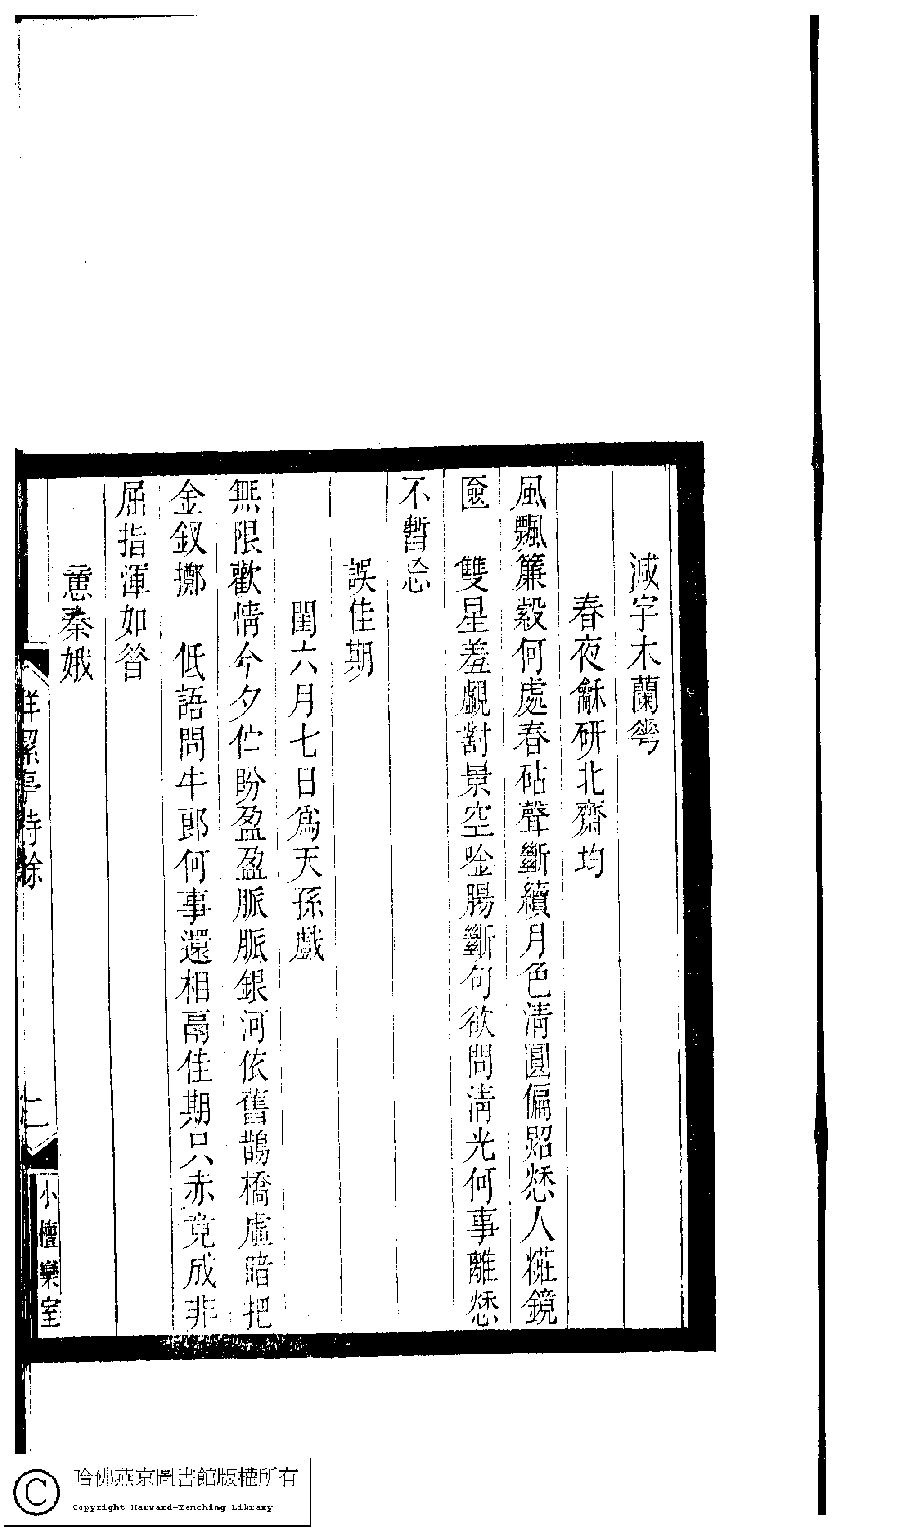 減字木蘭花
春夜龢研北齋均
風飄簾縠何處春砧聲斷續月色清圓偏照愁人粧鏡
奩　雙星羞覷對景空唫腸斷句欲問清光何事離愁
不暫忘
誤佳期
閏六月七日為天孫戲
無限歡情今夕伫盼盈盈脈脈銀河依舊鵲橋虛暗把
金釵擲　低語問牛郎何事還相鬲佳期只赤竟成非
屈指渾如昝
憶秦娥
絜亭詩餘
二
小檀欒室
哈佛燕京圖書館版權所有
Copyright Harvard-Yenching Library